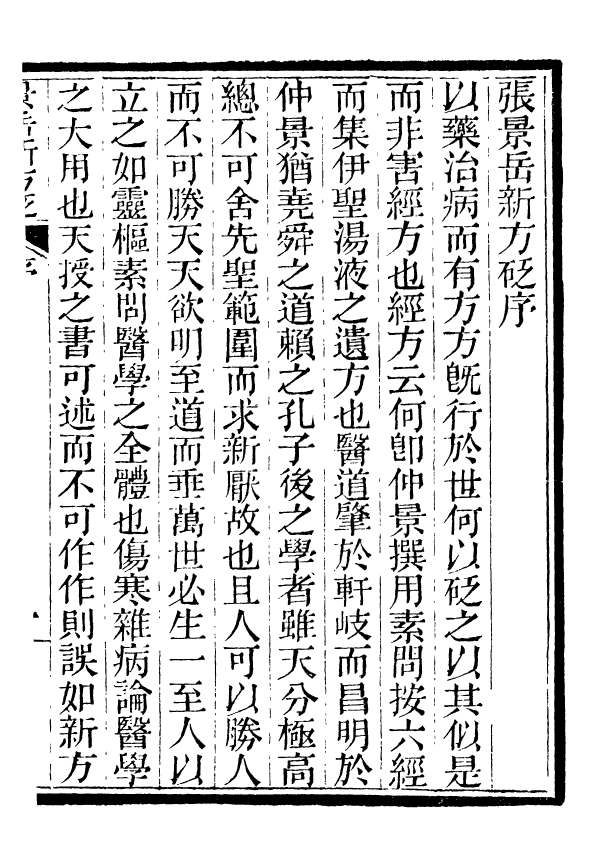 張景岳新方砭序
以藥治病而有方方旣行於世何以砭之以其似是
而非害經方也經方云何卽仲景撰用素問按六經
而集伊聖湯液之遺方也醫道肇於軒岐而昌明於
仲景猶堯舜之道賴之孔子後之學者雖天分極高
總不可舍先聖範圍而求新厭故也且人可以勝人
而不可勝天天欲明至道而垂萬世必生一至人以
立之如靈樞素問醫學之全體也傷寒雜病論醫學
之大用也天授之書可述而不可作作則誤如新方
景岳新方砭
序
一